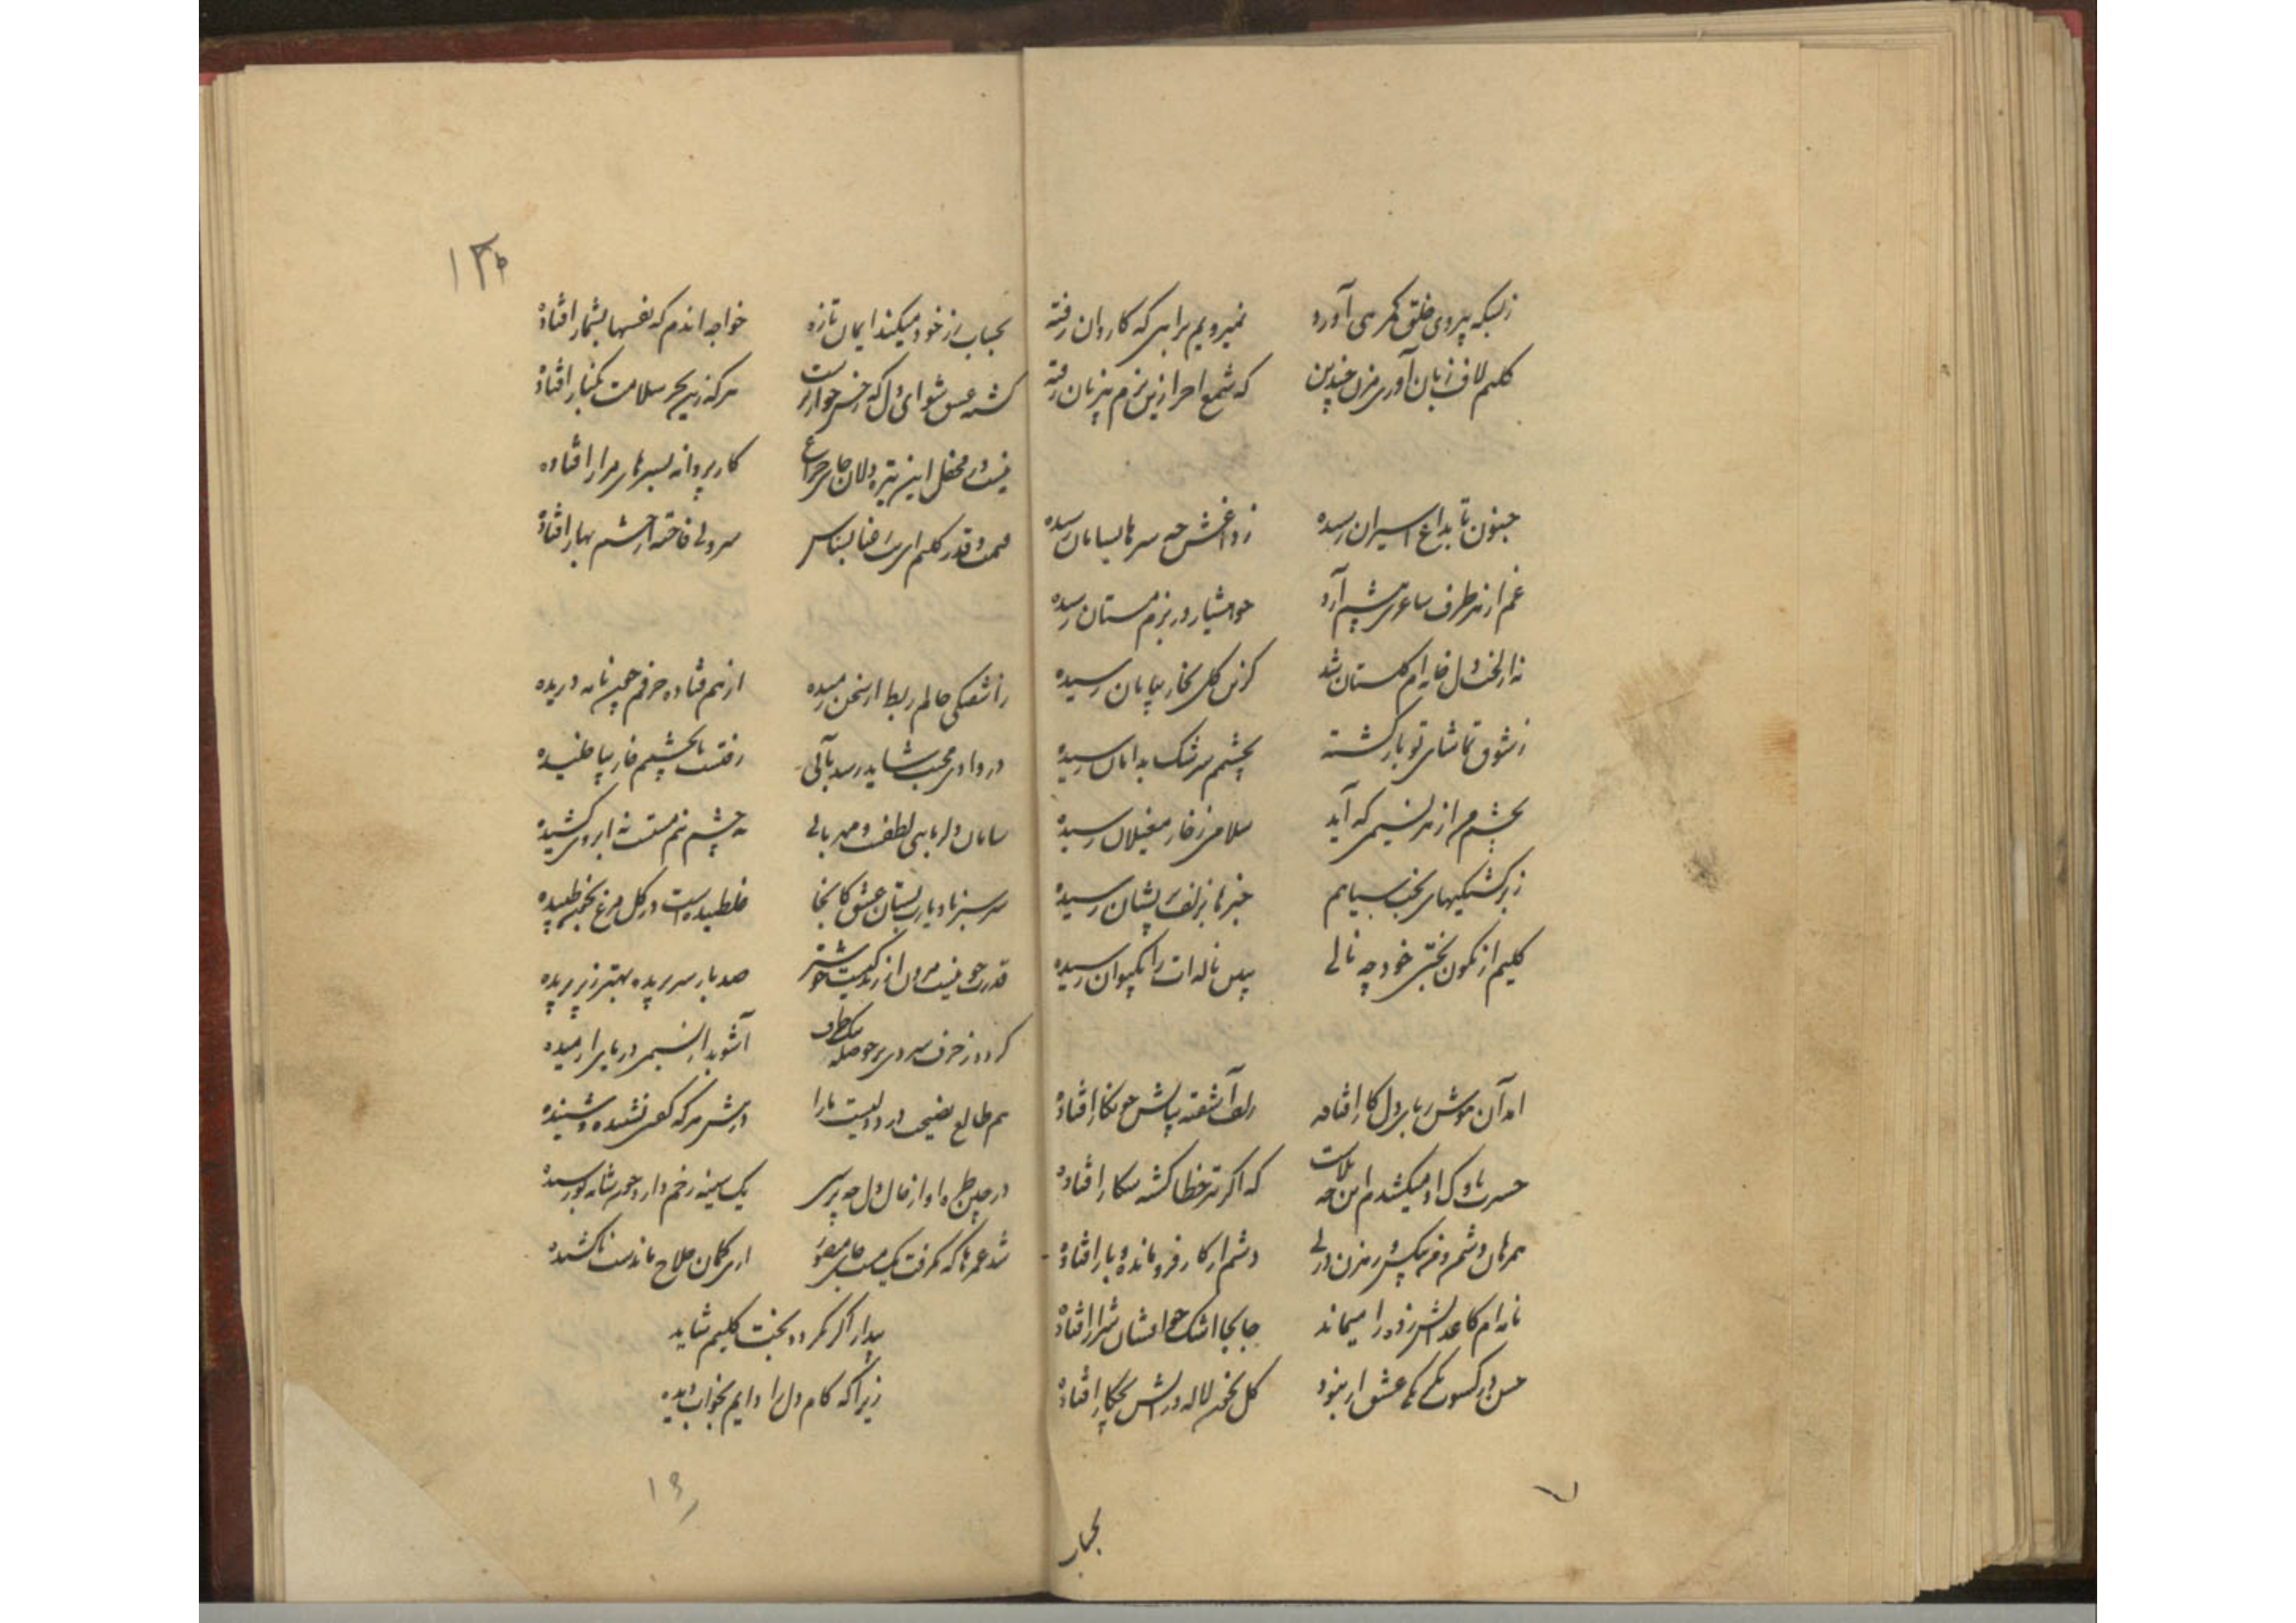 زبسکه پیروی خلق گمرهی آورد نمیرویم براهی که کاروان رفته
کلیم لاف زبان آوری مزن چندین که شمع احر ازین بزم بیزبان رفته
جنون تا بداغ اسیران رسیده ز داغش چه سرها بسامان رسیده
غم از هر طرف ساغری پیشم آرد چو هشیار در بزم مستان رسیده
نه از لخت دل خانه ام گلستان شد کزین گل بخار بیابان رسیده
ز شوق تماشای تو باز گشته بچشمم سرشک بدامان رسیده
بچشم من از هر نسیمی که آید سلامی ز خار مغیلان رسیده
ز سرگشتگیهای بخت سیاهم خبرها بزلف پریشان رسیده
کلیم از نگون بختی خود چه نالی ببین ناله ات را بکیوان رسیده
آمد آن هوش ربا بر دل کار افتاده زلف آشفته بپایش چو نگار افتاده
حسرت ناوک او میکشدم این چه بلاست که اگر تیر خطا گشته شکار افتاده
همرهان دشمن و در پیش رهزن در پی دستم از کار فرو مانده و بار افتاده
نامه ام کاغذ آتش زده را میماند جابجا اشک چو افشان شرار افتاده
حسن در کسوت عشق ار بنمود گل بخون لاله در آتش بچکار افتاده
بحباب
بحباب از خود میکند ایمان تازه خواجه اندم که نفسها بشمار افتاده
کشته عشق شو ای دل که خس خوار است هر که زین بحر سلامت بکنار افتاده
نیست در محفل این تیره دلان جای چراغ کار پروانه بسرهای مزار افتاده
قیمت و قدر کلیم بشناس سرو بی فاخته از چشم بهار افتاده
ز آشفتگی حالم ربط از سخن رمیده از هم فتاده حرفم چون نامه دریده
در وادی محبت شاید رسد بآبی رفتست تا بچشمم خار بپا خلیده
سامان دلربایی لطفست و مهربانی نه چشم نیم مستست نه ابروی کشیده
سرسبز باد یارب بستان عشق کانجا غلطیده است در گل مرغ بخون طپیده
صد بار سر بریده بهتر ز پر بریده
گردد ز حرف سردی بر حوصله سبکظرف آشوبد از نسیمی دریای آرمیده
هم طالع نصیحت در دوریست ما را در پیش هر که گفتی نشنیده و شنیده
در چین طره او از حال دل چه پرسی یک سینه زخم دارد چون شانه نو رسیده
شد عمرها که نگرفت یک صید جای ازین کمان حلاج ماندست ناکشیده
بیدار اگر نگردد بخت کلیم شاید
زیرا که کام دل را دایم بخواب دیده